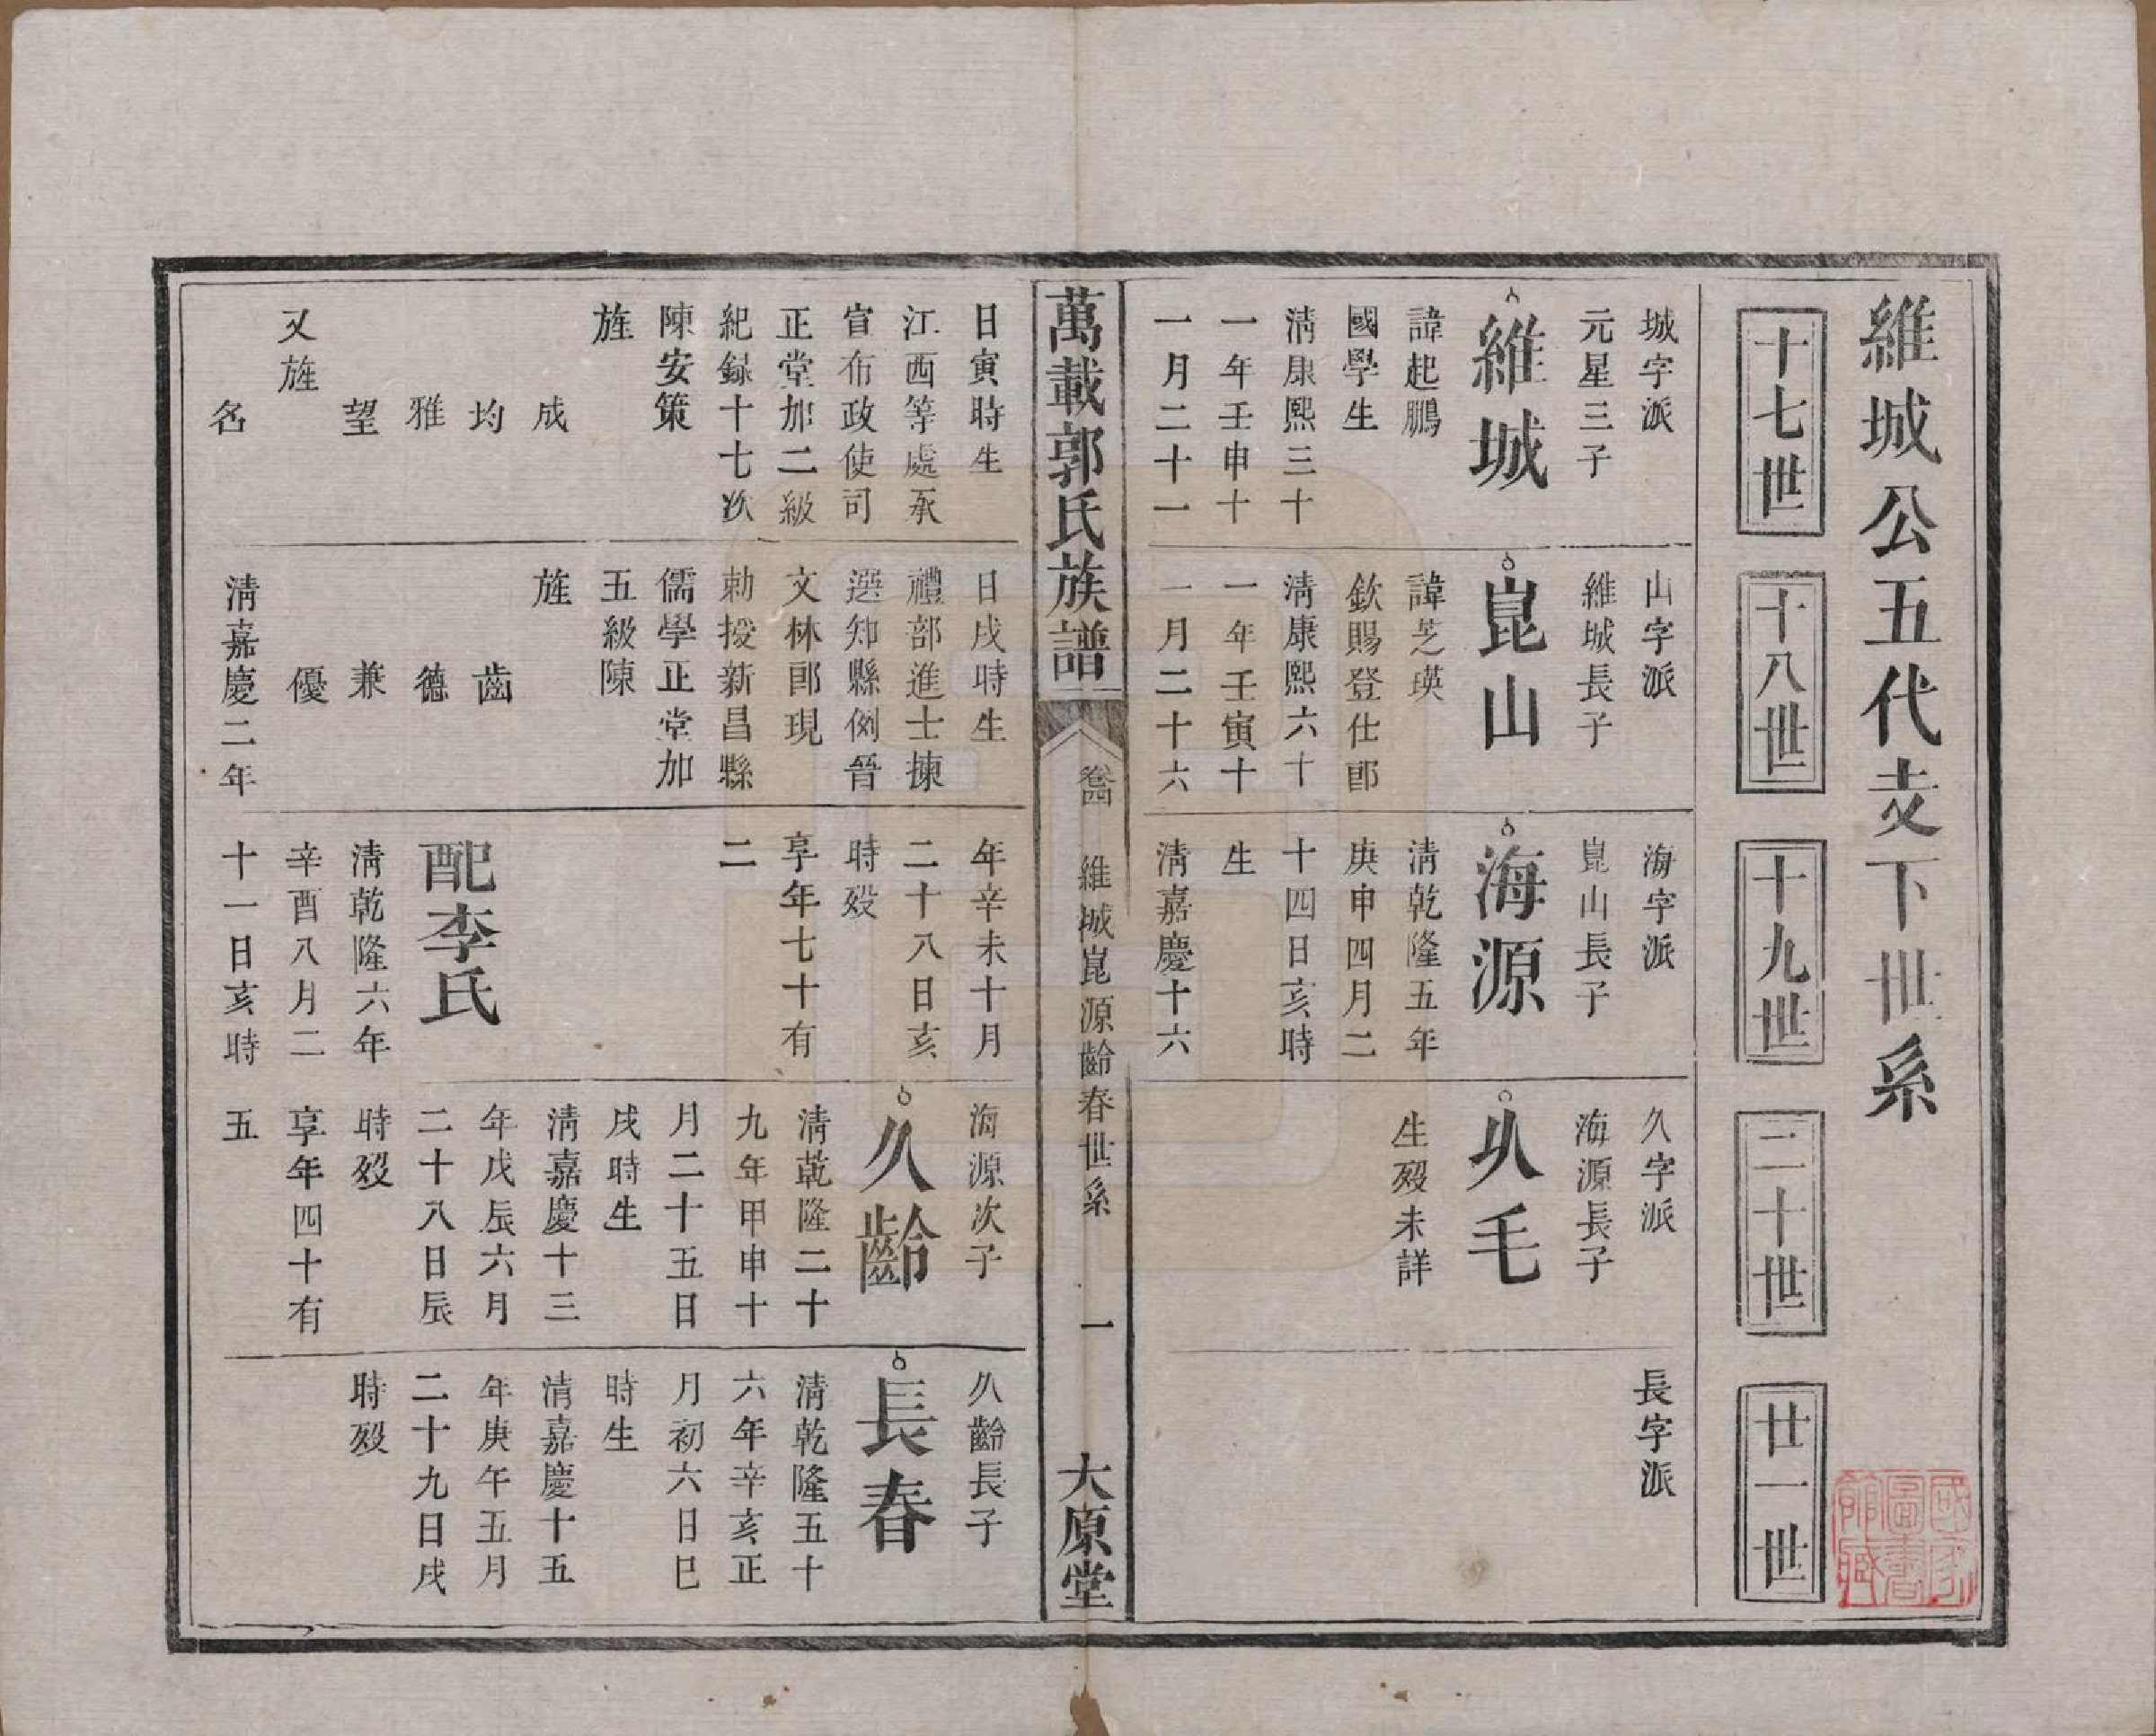 維城公五代支下世系
十七世
十八世
十九世
二十世
廿一世
城字派
元星三子
維城
諱起鵬
國學生
清康熙三十
一年壬申十
一月二十一
山字派
維城長子
崑山
諱芝瑛
欽賜登仕郎
清康熙六十
一年壬寅十
一月二十六
海字派
崑山長子
海源
清乾隆五年
庚申四月二
十四日亥時
生
清嘉慶十六
久字派
海源長子
久毛
生歿未詳
長字派
萬載郭氏族譜
卷四
維城崑源齡春世系
一
大原堂
日寅時生
江西等處承
宣布政使司
正堂加二級
紀錄十七次
陳安策
旌
成
均
雅
望
又旌
名
日戌時生
禮部進士揀
選知縣例晉
文林郎現
勅授新昌縣
儒學正堂加
五級陳
旌
齒
德
兼
優
清嘉慶二年
年辛未十月
二十八日亥
時歿
享年七十有
二
配李氏
清乾隆六年
辛酉八月二
十一日亥時
海源次子
久齡
清乾隆二十
九年甲申十
月二十五日
戌時生
清嘉慶十三
年戊辰六月
二十八日辰
時歿
享年四十有
五
久齡長子
長春
清乾隆五十
六年辛亥正
月初六日巳
時生
清嘉慶十五
年庚午五月
二十九日戌
時歿
國家
圖書
館藏